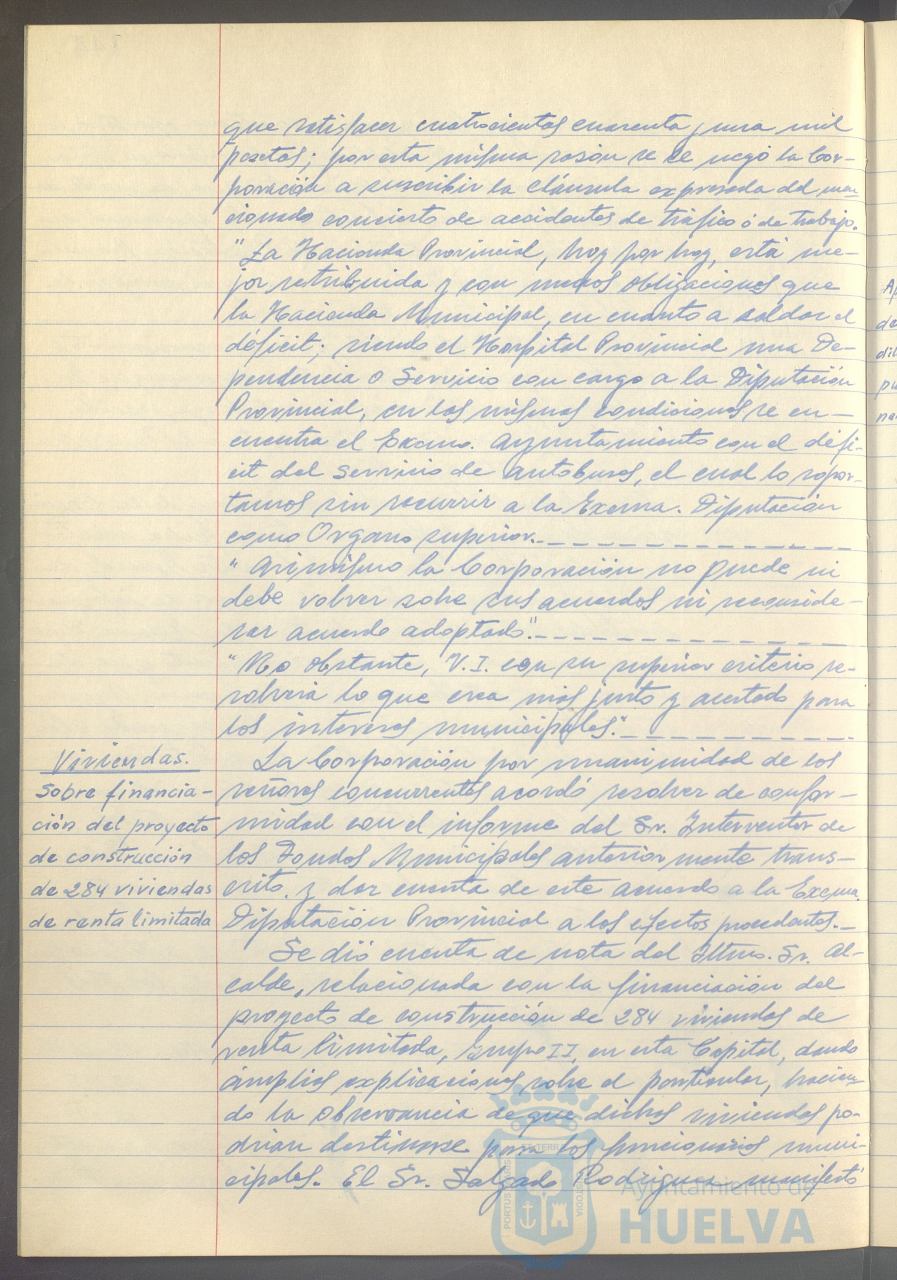 que satisfacer cuatrocientas cuarenta y una mil
pesetas; por esta misma razón se le negó la Cor-
poración a suscribir la cláusula expresada del men
cionado concierto de accidentes de tráfico ó de trabajo.
"La Hacienda Provincial, hoy por hoy, está me-
jor retribuida y con menos obligaciones que
la Hacienda Municipal, en cuanto a saldar el
déficit; siendo el Hospital Provincial una De-
pendencia o Servicio con cargo a la Diputación
Provincial, en las mismas condiciones se en-
cuentra el Excmo. Ayuntamiento con el défi-
cit del servicio de autobuses, el cual lo sopor-
tamos sin recurrir a la Excma. Diputación
como Organo superior.
"Asimismo la Corporación no puede ni
debe volver sobre sus acuerdos ni reconside-
rar acuerdo adoptado".
"No obstante, V.I. con su superior criterio re-
solverá lo que crea más justo y acertado para
los intereses municipales".
La Corporación por unanimidad de los
señores concurrentes acordó resolver de confor-
midad con el informe del Sr. Interventor de
los Fondos Municipales anteriormente trans-
crito, y dar cuenta de este acuerdo a la Excma.
Diputación Provincial a los efectos procedentes.
Viviendas.
Sobre financia-
ción del proyecto
de construcción
de 284 viviendas
de renta limitada
Se dió cuenta de nota del Iltmo. Sr. Al-
calde, relacionada con la financiación del
proyecto de construcción de 284 viviendas de
renta limitada, Grupo II, en esta Capital, dando
ámplias explicaciones sobre el particular, hacien
do la observancia de que dichas viviendas po-
drían destinarse para los funcionarios muni-
cipales. El Sr. Salgado Rodríguez manifestó
Ayuntamiento de
HUELVA